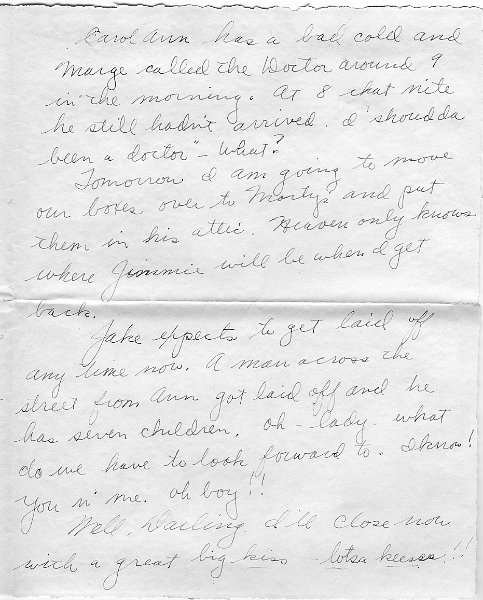 Carol Ann has a bad cold and
Marge called the Doctor around 9
in the morning. At 8 that nite
he still hadn't arrived. I "shoudda
been a doctor" - What?
Tomorrow I am going to move
our boxes over to Marty's and put
them in his attic. Heaven only knows
where Jimmie will be when I get
back.
Jake expects to get laid off
any time now. A man across the
street from Ann got laid off and he
has seven children. Oh - lady - what
do we have to look forward to. I know!
You n' me. Oh boy!!
Well, Darling, I'll close now
with a great big kiss - lotsa keesss!!